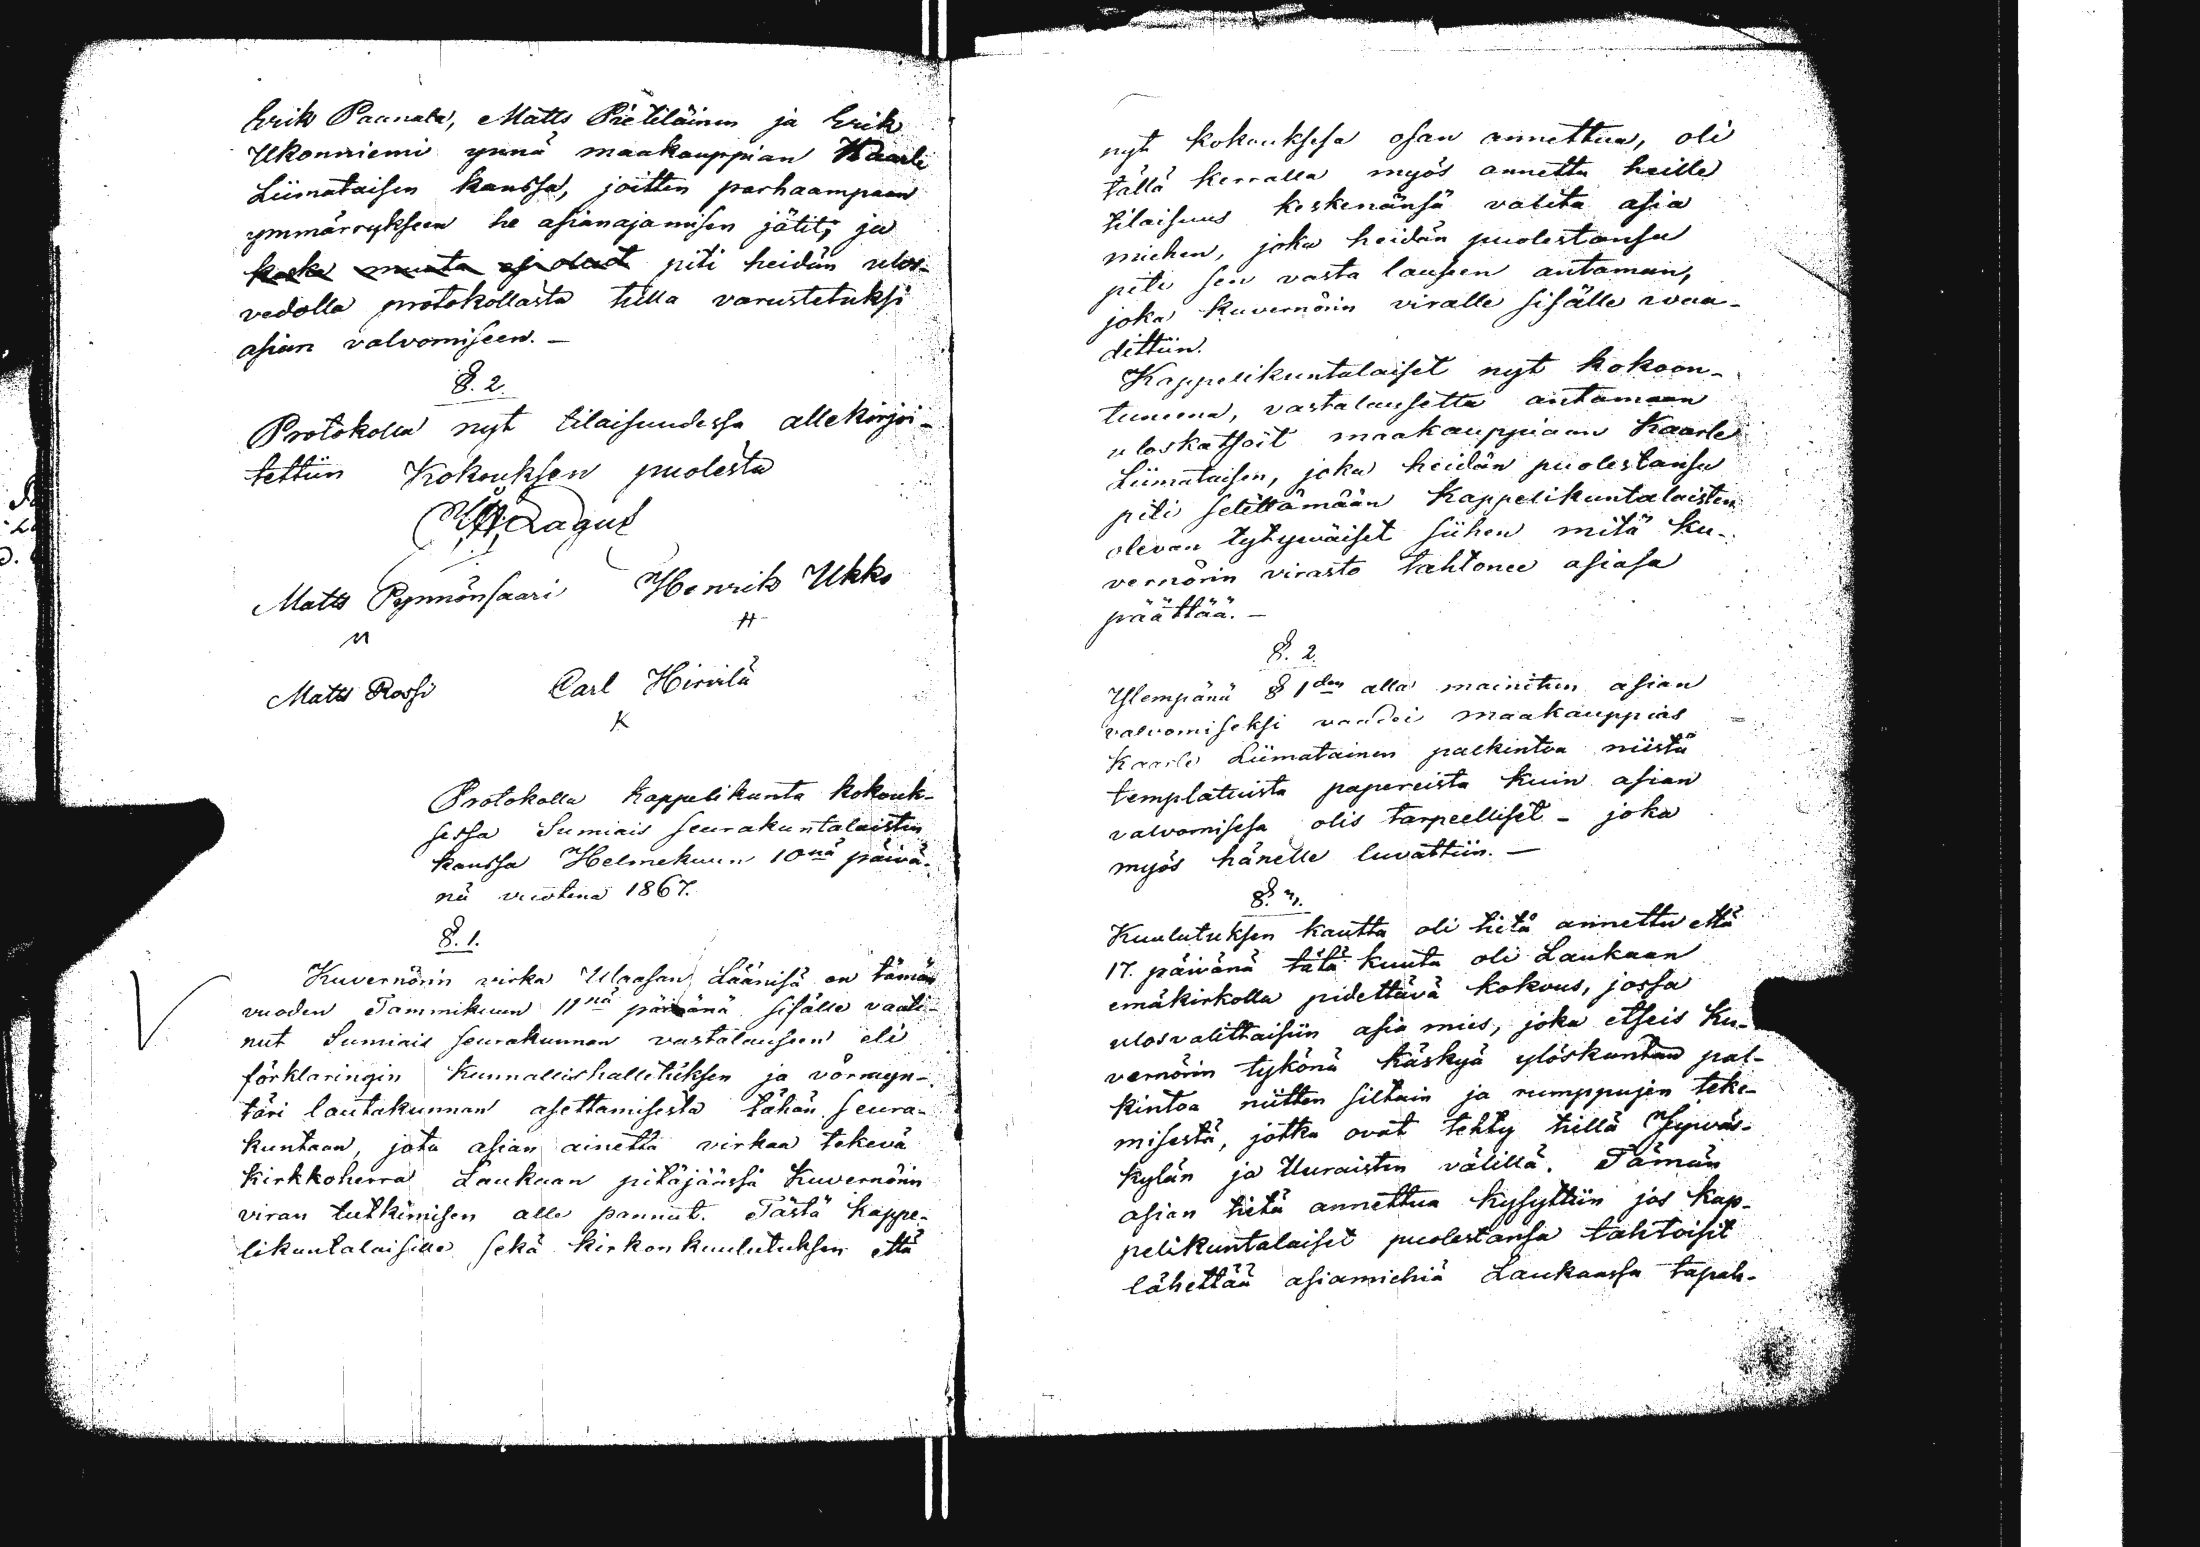 Erik Paanala, Matts Pietiläinen ja Erik
Ukonniemi ynnä maakauppian Kaarle
Liimataisen kanssa, joitten parhaampaan
ymmärrykseen he asianajamisen jätit, ja
koska muuta ej olart piti heidän ulos-
vedolla protokollasta tulla varustetuksi
asian valvomiseen. —
§. 2.
Protokolla nyt tilaisuudessa allekirjoi-
tettiin Kokouksen puolesta
Matts Pynnönsaari Henrik Ukko
M H
Matts Rossi Carl Hirvilä
K
Protokolla kappelikunta kokouk-
sessa Sumiais seurakuntalaisten
kanssa Helmekuun 10nä päivä-
nä vuotena 1867.
§. 1.
Kuvernörin virka Waasan Läänisä on tämän
vuoden Tammikuun 11nä päivänä sisälle vaati-
nut Sumiais seurakunnan vastalauseen eli
förklaringin Kunnallishallituksen ja vörmyn-
täri lautakunnan asettamisesta tähän seura-
kuntaan, jota asian ainetta virkaa tekevä
Kirkkoherra Laukaan pitäjäässä Kuvernörin
viran tutkimisen alle pannut. Tästä kappe-
likuntalaisille sekä kirkon kuulutuksen että
nyt kokouksesa osan annettua, oli
tällä kerralla myös annettu heille
tilaisuus keskenänsä valita asia
miehen, joka heidän puolestansa
piti sen vasta lauseen antaman,
joka Kuvernörin viralle sisälle waa-
dittiin.
Kappelikuntalaiset nyt kokoon-
tuneena, vastalausetta antamaan
uloskatsoit maakauppiaan Kaarle
Liimataisen, joka heidän puolestansa
piti selittämään Kappelikuntalaisten
olevan tytywäiset siihen mitä Ku-
vernörin virasto tahtonee asiasa
päättää. —
§. 2.
Ylempänä § 1den alla mainitun asian
valvomiseksi vaadei maakauppias
Kaarle Liimatainen palkintoa niistä
templatuista papereista kuin asian
valvomisesa olis tarpeelliset - joka
myös hänelle luvattiin. —
§. 3.
Kuulutuksen kautta oli tietä annettu että
17. päivänä tätä kuuta oli Laukaan
emäkirkolla pidettävä kokous, jossa
ulosvalittaisiin asia mies, joka etseis Ku-
vernörin tykönä käskyä ylöskantaa pal-
kintoa niitten siltain ja rumppujen teke-
misestä, jotka ovat tehty tiellä Jyväs-
kylän ja Uuraisten välillä. Tämän
asian tietä annettua kysyttiin jos kap-
pelikuntalaiset puolestansa tahtoisit
lähettää asiamiehiä Laukaassa tapah-